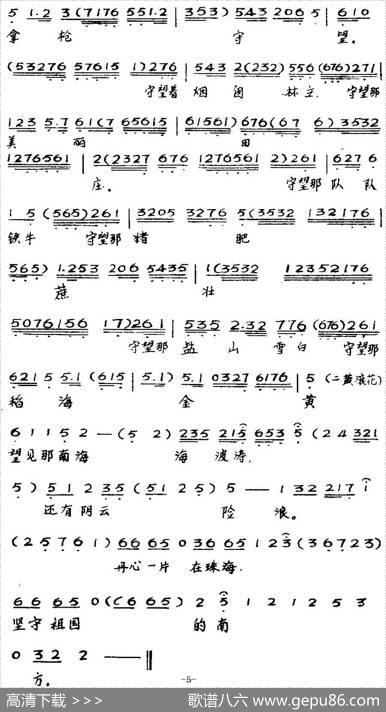 5 1.2 3(7176 5551.2 | 353) 543 206 5 | 610
拿 枪 守 望。
(53276 57615 1)276 | 543 2(232) 556 (676)271 |
守望着 烟 囱 林立 守望那
123 5.7 61(7 65615 | 61561) 676(67 6) 3532
美 丽 田
1276561 | 2(2327 676 1276561 2)261 | 627 6
庄。 守望那 队 队
1 5 (565)261 | 3205 3276 5(3532 132176 |
铁牛 守望那 猪 肥
565) 1.253 206 5435 | 1(3532 12352176
蔗 壮
5076156 17)261 | 535 2.32 776 (676)261 |
守望那 盐 山 雪白 守望那
621 5 5.1 (615 | 5.1) 5.1 0327 6176 | 5 (二黄滚花)
稻 海 金 黄
6 1 1 5 2 — (5 2) 235 215 653 5 (24 321
望见那南海 海 波涛,
5) 5 1 2 35 (51 25) 5 — — 1 32 217 1
还有阴云 险 浪。
(2 5 7 6 1) 66 65 0 36 65 1 2 3 (3 6 7 2 3)
丹心一片 在珠海,
66 65 0 (66 65) 2 5 1 2 1 2 5 3
坚守 祖国 的 南
0 32 2 — — ‖
方。
-5-
高清下载 >>> 歌谱八六 www.gepu86.com